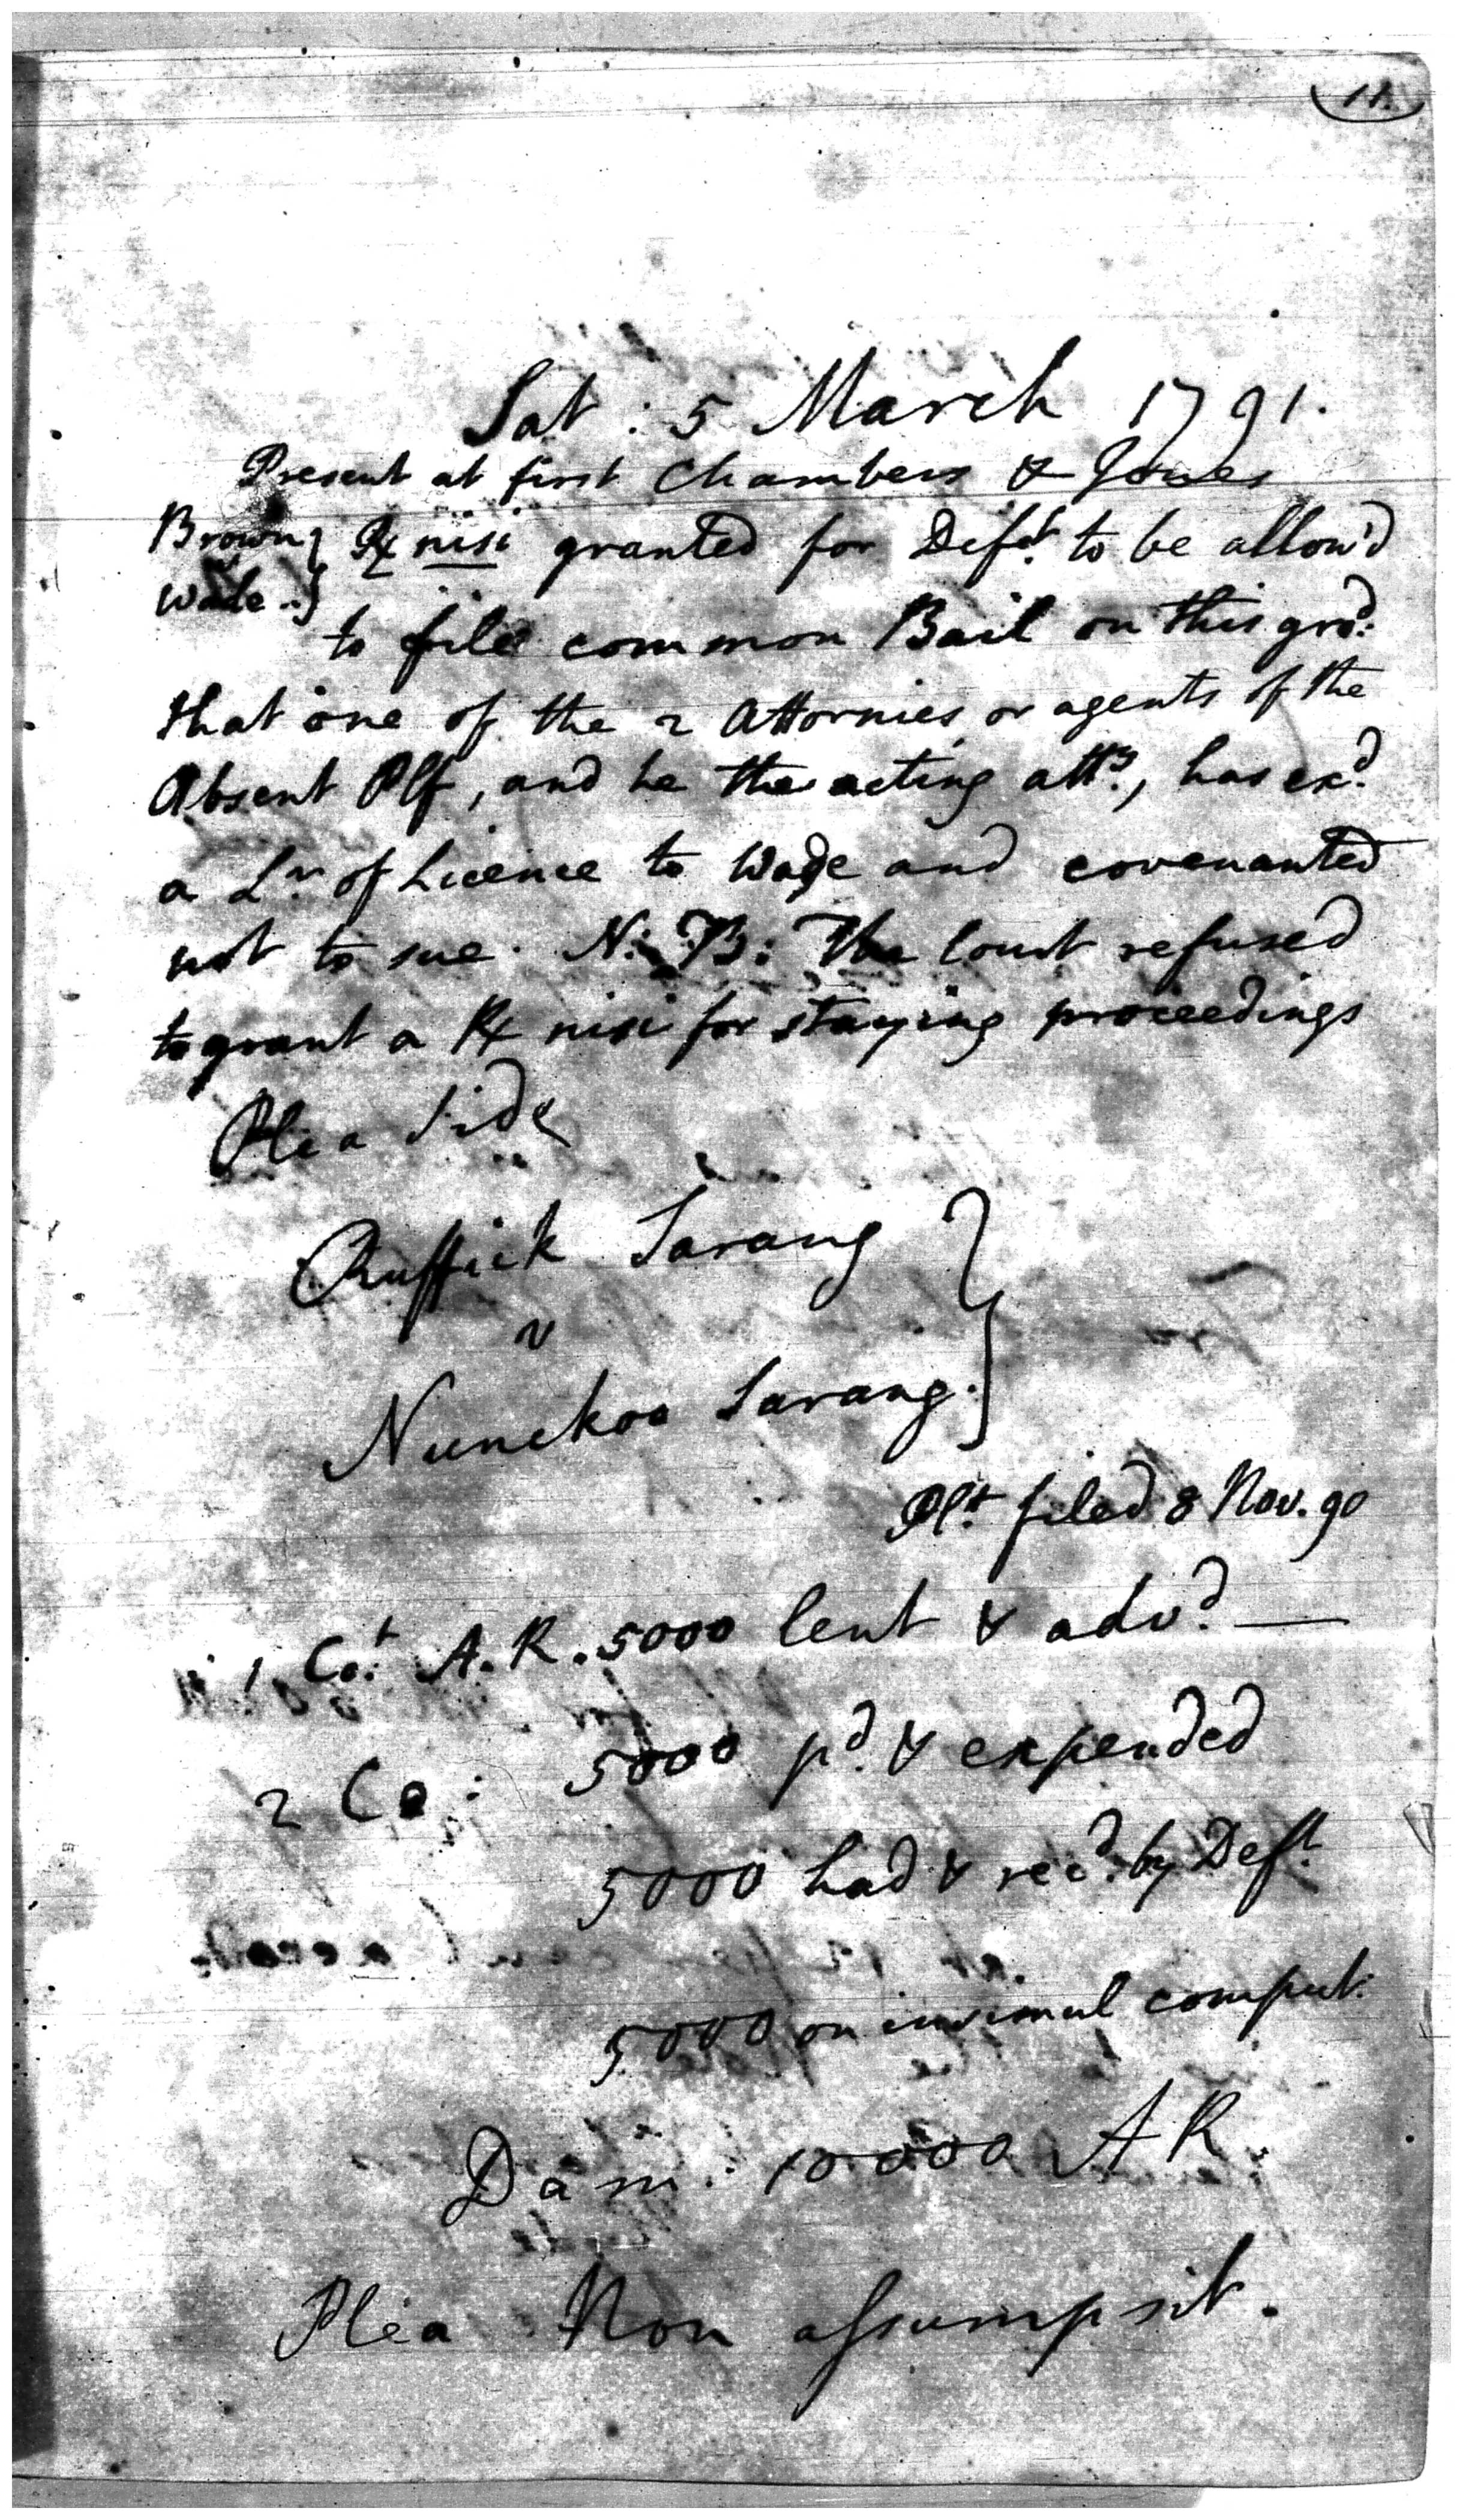 11.
Sat : 5 March 1791.
Present at first Chambers & Jones
Brown } Rx nisi granted for Deft. to be allow'd
Wade .. }
to file common Bail on this grod:
that one of the 2 Attornies or agents of the
Absent Plf, and he the acting atty., has exd.
a Lr. of Licence to Wade and covenanted
not to sue. N: B: The Court refused
to grant a Rx nisi for staying proceedings
Plea Side
Ruffick Sarang }
v
Nunckoo Sarang. }
Plt. filed 8 Nov. 90
1 Cot: A. R. 5000 lent & advd. —
2 Co : 5000 pd. & expended
5000 had & recd. by Deft.
5000 on insimul comput:
Dam : 10000 A R.
Plea Non assumpsit.